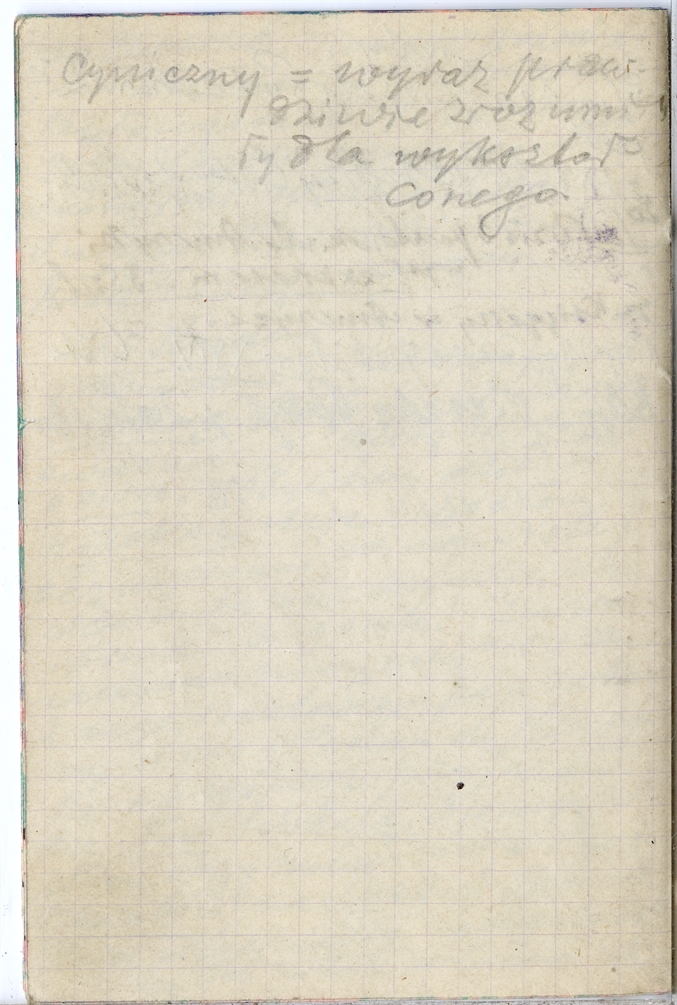 Cyniczny = wyraz praw-
dziwie zrozumia
ły dla wykształ
conego